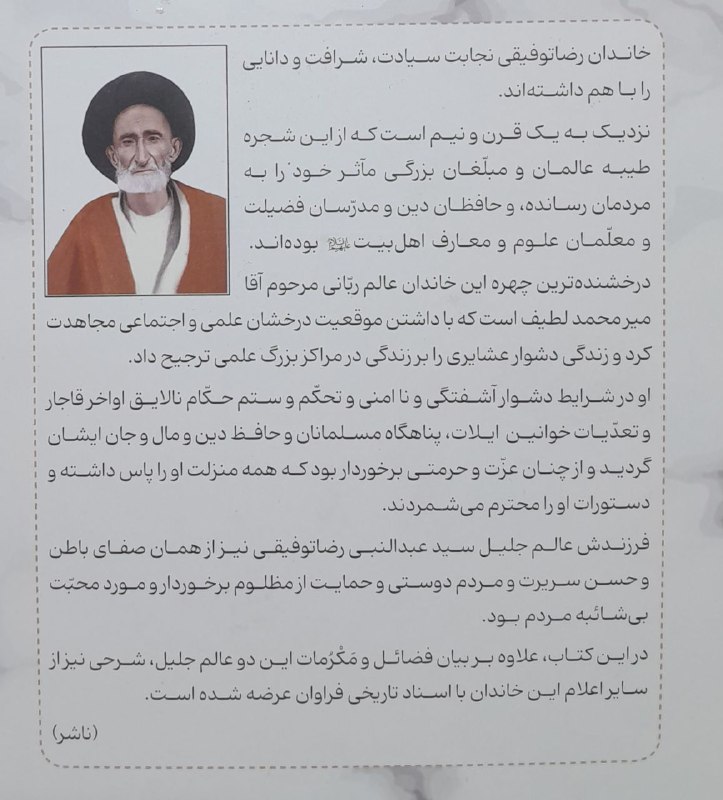 خاندان رضاتوفیقی نجابت سیادت، شرافت و دانایی
را با هم داشته‌اند.
نزدیک به یک قرن و نیم است که از این شجره
طیبه عالمان و مبلّغان بزرگی مآثر خود را به
مردمان رسانده، و حافظان دین و مدرّسان فضیلت
و معلّمان علوم و معارف اهل‌بیت علیهم‌السلام بوده‌اند.
درخشنده‌ترین چهره این خاندان عالم ربّانی مرحوم آقا
میر محمد لطیف است که با داشتن موقعیت درخشان علمی و اجتماعی مجاهدت
کرد و زندگی دشوار عشایری را بر زندگی در مراکز بزرگ علمی ترجیح داد.
او در شرایط دشوار آشفتگی و نا امنی و تحکّم و ستم حکّام نالایق اواخر قاجار
و تعدّیات خوانین ایلات، پناهگاه مسلمانان و حافظ دین و مال و جان ایشان
گردید و از چنان عزّت و حرمتی برخوردار بود که همه منزلت او را پاس داشته و
دستورات او را محترم می‌شمردند.
فرزندش عالم جلیل سید عبدالنبی رضاتوفیقی نیز از همان صفای باطن
و حسن سریرت و مردم دوستی و حمایت از مظلوم برخوردار و مورد محبّت
بی‌شائبه مردم بود.
در این کتاب، علاوه بر بیان فضائل و مَکْرُمات این دو عالم جلیل، شرحی نیز از
سایر اعلام این خاندان با اسناد تاریخی فراوان عرضه شده است.
(ناشر)